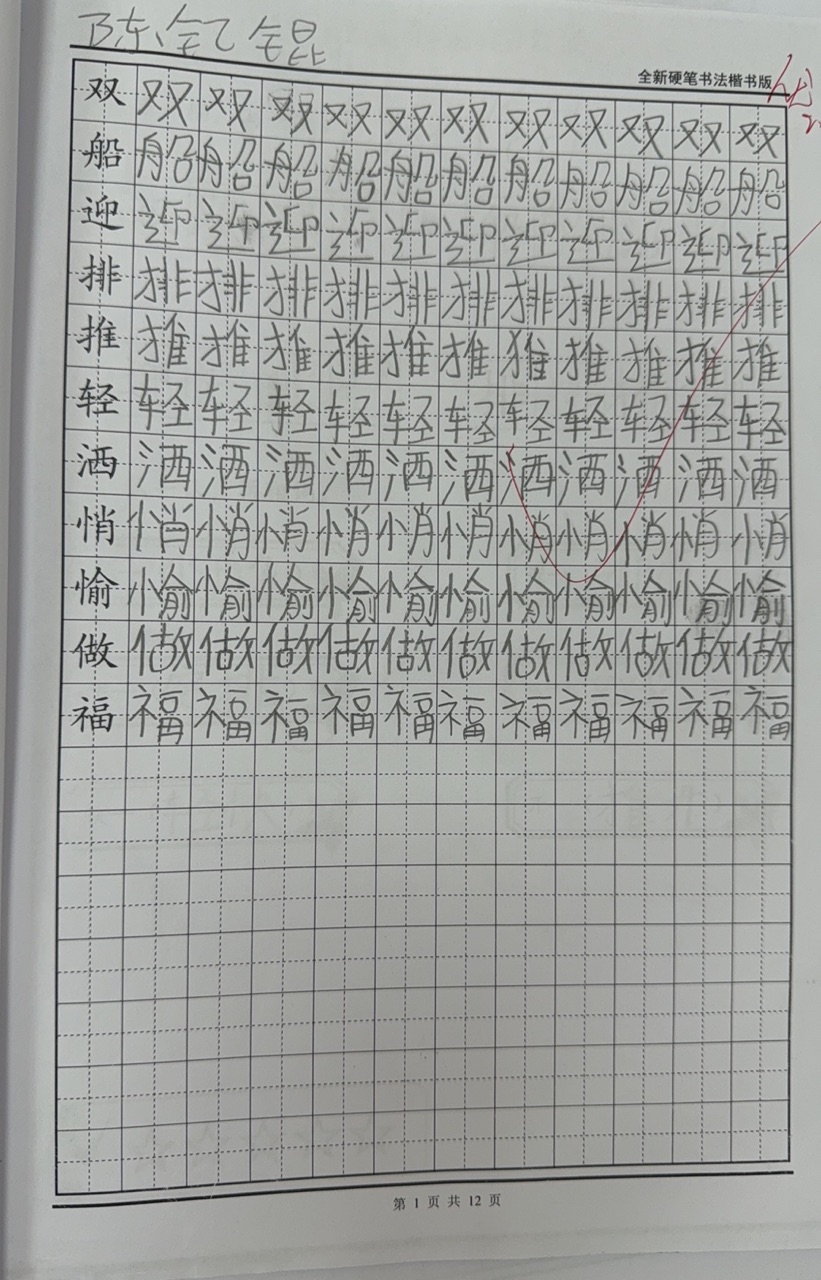 陈钇锟
全新硬笔书法楷书版
双 双 双 双 双 双 双 双 双 双 双 双
船 船 船 船 船 船 船 船 船 船 船 船
迎 迎 迎 迎 迎 迎 迎 迎 迎 迎 迎 迎
排 排 排 排 排 排 排 排 排 排 排 排
推 推 推 推 推 推 推 推 推 推 推 推
轻 轻 轻 轻 轻 轻 轻 轻 轻 轻 轻 轻
洒 洒 洒 洒 洒 洒 洒 洒 洒 洒 洒 洒
悄 悄 悄 悄 悄 悄 悄 悄 悄 悄 悄 悄
愉 愉 愉 愉 愉 愉 愉 愉 愉 愉 愉 愉
做 做 做 做 做 做 做 做 做 做 做 做
福 福 福 福 福 福 福 福 福 福 福 福
第 1 页 共 12 页